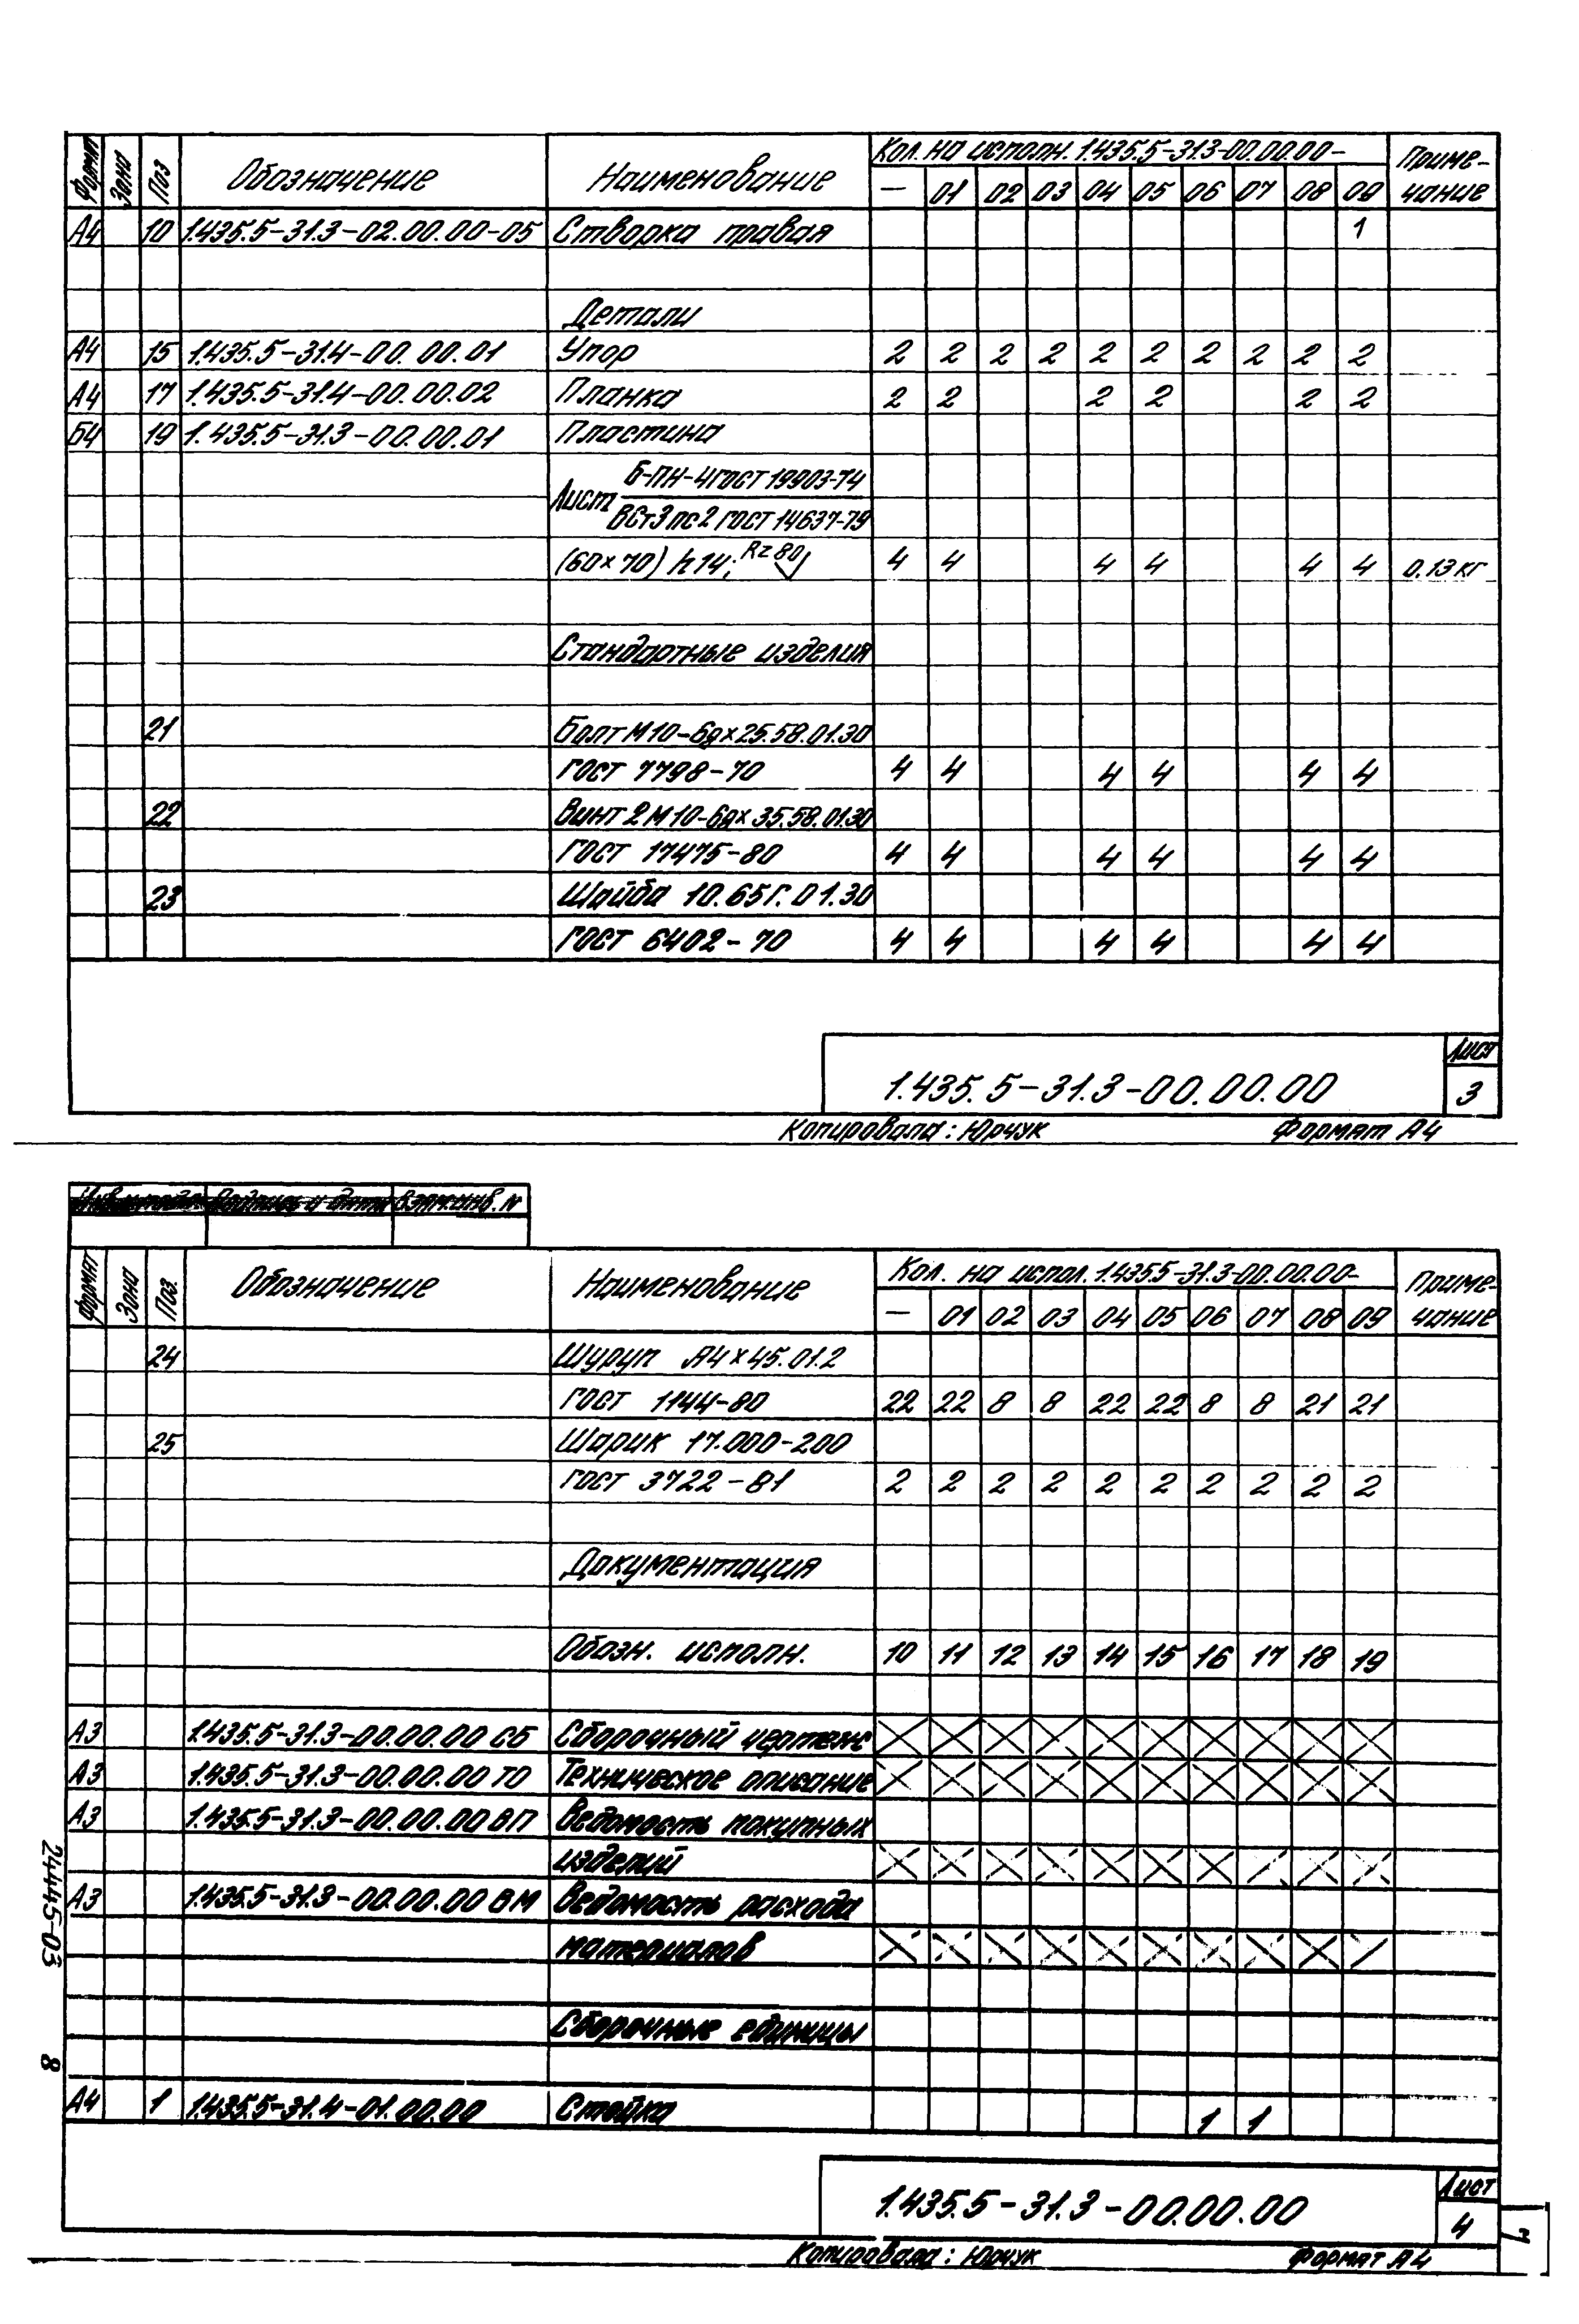 Формат Зона Поз Обозначение Наименование Кол. на исполн. 1.435.5-31.3-00.00.00- Приме-
— 01 02 03 04 05 06 07 08 09 чание
А4 10 1.435.5-31.3-02.00.00-05 Створка правая 1
Детали
А4 15 1.435.5-31.4-00.00.01 Упор 2 2 2 2 2 2 2 2 2 2
А4 17 1.435.5-31.4-00.00.02 Планка 2 2 2 2 2 2
Б4 19 1.435.5-31.3-00.00.01 Пластина
Б-ПН-4 ГОСТ 19903-74
Лист
ВСт3пс2 ГОСТ 14637-79
(60×70) h14; Rz 80 4 4 4 4 4 4 0.13 кг
Стандартные изделия
21 Болт М10-6g×25.58.01.30
ГОСТ 7798-70 4 4 4 4 4 4
22 Винт 2М10-6g×35.58.01.30
ГОСТ 17475-80 4 4 4 4 4 4
23 Шайба 10.65Г.01.30
ГОСТ 6402-70 4 4 4 4 4 4
1.435.5-31.3-00.00.00 Лист
3
Копировала: Юрчук Формат А4
Подпись и дата Взам.инв.N
Формат Зона Поз. Обозначение Наименование Кол. на испол. 1.435.5-31.3-00.00.00- Приме-
— 01 02 03 04 05 06 07 08 09 чание
24 Шуруп А4×45.01.2
ГОСТ 1144-80 22 22 8 8 22 22 8 8 21 21
25 Шарик 17.000-200
ГОСТ 3722-81 2 2 2 2 2 2 2 2 2 2
Документация
Обозн. исполн. 10 11 12 13 14 15 16 17 18 19
А3 1.435.5-31.3-00.00.00 СБ Сборочный чертеж
А3 1.435.5-31.3-00.00.00 ТО Техническое описание
А3 1.435.5-31.3-00.00.00 ВП Ведомость покупных
изделий
А3 1.435.5-31.3-00.00.00 ВМ Ведомость расхода
материалов
Сборочные единицы
А4 1 1.435.5-31.4-01.00.00 Стойка 1 1
1.435.5-31.3-00.00.00 Лист
4
Копировала: Юрчук Формат А4
24445-03 8
7